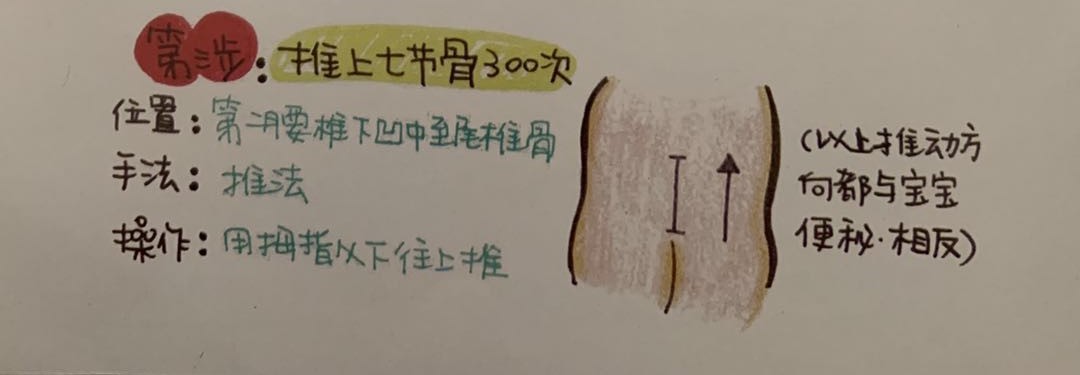 第涉：推上七节骨300次
位置：第二腰椎下凹中至尾椎骨
手法：推法
操作：用拇指以下往上推
（以上推动方
向都与宝宝
便秘·相反）